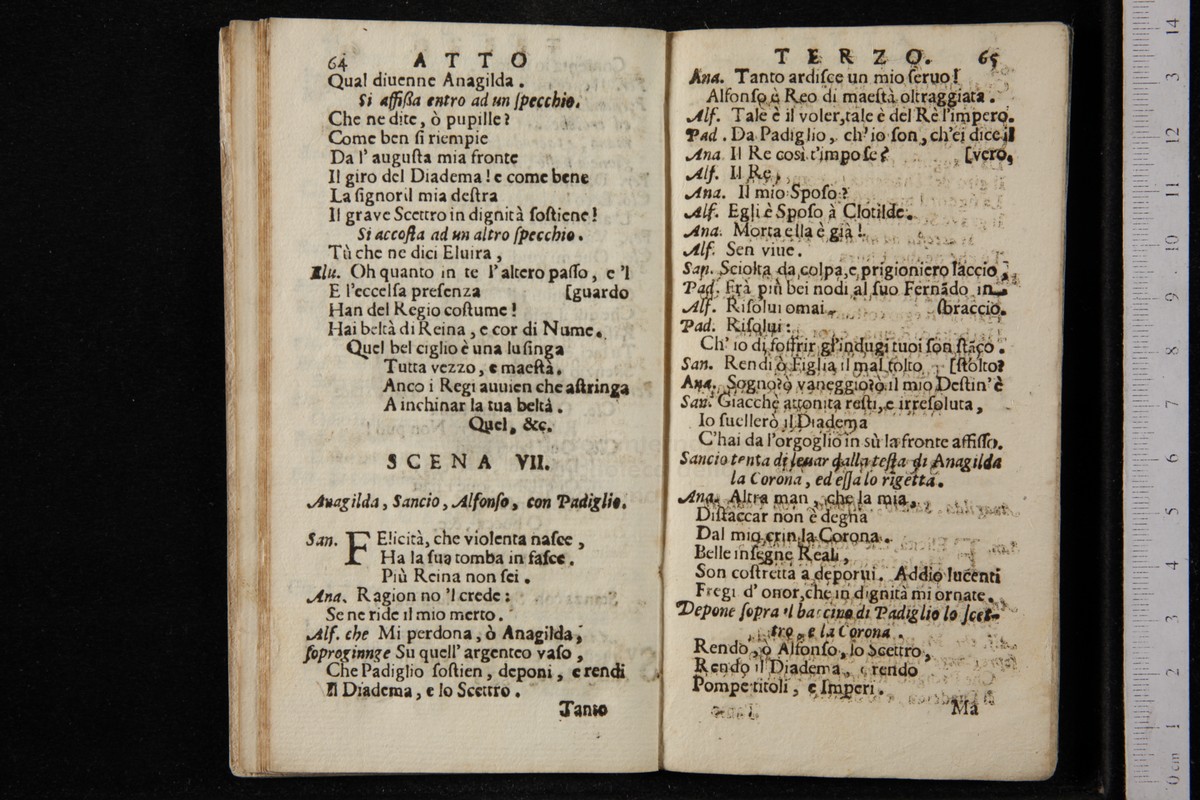 64 ATTO
Qual diuenne Anagilda.
Si affißa entro ad un ſpecchio.
Che ne dite, ò pupille?
Come ben ſi riempie
Da l' auguſta mia fronte
Il giro del Diadema! e come bene
La ſignoril mia deſtra
Il grave Scettro in dignità ſoſtiene!
Si accoſta ad un altro ſpecchio.
Tù che ne dici Eluira,
Elu. Oh quanto in te l'altero paſſo, e 'l
E l'eccelſa preſenza [guardo
Han del Regio coſtume!
Hai beltà di Reina, e cor di Nume.
Quel bel ciglio è una luſinga
Tutta vezzo, e maeſtà.
Anco i Regi auuien che aſtringa
A inchinar la tua beltà.
Quel, &c.
SCENA VII.
Anagilda, Sancio, Alfonſo, con Padiglio.
San. FElicità, che violenta naſce,
Ha la ſua tomba in faſce.
Più Reina non ſei.
Ana. Ragion no 'l crede:
Se ne ride il mio merto.
Alf. che Mi perdona, ò Anagilda,
ſoproginnge Su quell' argenteo vaſo,
Che Padiglio ſoſtien, deponi, e rendi
Il Diadema, e lo Scettro.
Tanto
TERZO. 65
Ana. Tanto ardiſce un mio ſeruo!
Alfonſo è Reo di maeſtà oltraggiata.
Alf. Tale è il voler, tale è del Rè l'impero.
Pad. Da Padiglio, ch'io ſon, ch'ei dice il
Ana. Il Re così t'impoſe? [vero,
Alf. Il Re.
Ana. Il mio Spoſo?
Alf. Egli è Spoſo à Clotilde.
Ana. Morta ella è già!
Alf. Sen viue.
San. Sciolta da colpa, e prigioniero laccio,
Pad. Frà più bei nodi al ſuo Fernãdo in-
Alf. Riſolui omai, [braccio.
Pad. Riſolui:
Ch' io di ſoffrir gl'indugi tuoi ſon ſtãco.
San. Rendi ò Figlia il mal tolto [ſtolto?
Ana. Sogno? ò vaneggio? ò il mio Deſtin'è
San. Giacchè attonita reſti, e irreſoluta,
Io ſuellerò il Diadema
C'hai da l'orgoglio in sù la fronte affiſſo.
Sancio tenta di leuar dalla teſta di Anagilda
la Corona, ed eſſa lo rigetta.
Ana. Altra man, che la mia,
Diſtaccar non è degna
Dal mio crin la Corona.
Belle inſegne Reali,
Son coſtretta a deporui. Addio lucenti
Fregi d' onor, che in dignità mi ornate.
Depone ſopra il baccino di Padiglio lo ſcet-
tro, e la Corona.
Rendo, ò Alfonſo, lo Scettro,
Rendo il Diadema, e rendo
Pompe titoli, e Imperi.
Ma
14
13
12
11
10
9
8
7
6
5
4
3
2
1
0 cm